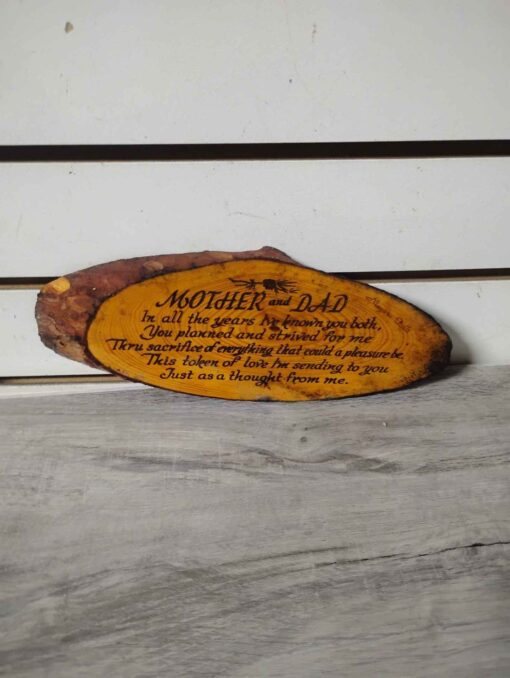 MOTHER and DAD
In all the years Iv known you both,
You planned and strived for me
Thru sacrifice of everything that could a pleasure be,
This token of love Im sending to you
Just as a thought from me.